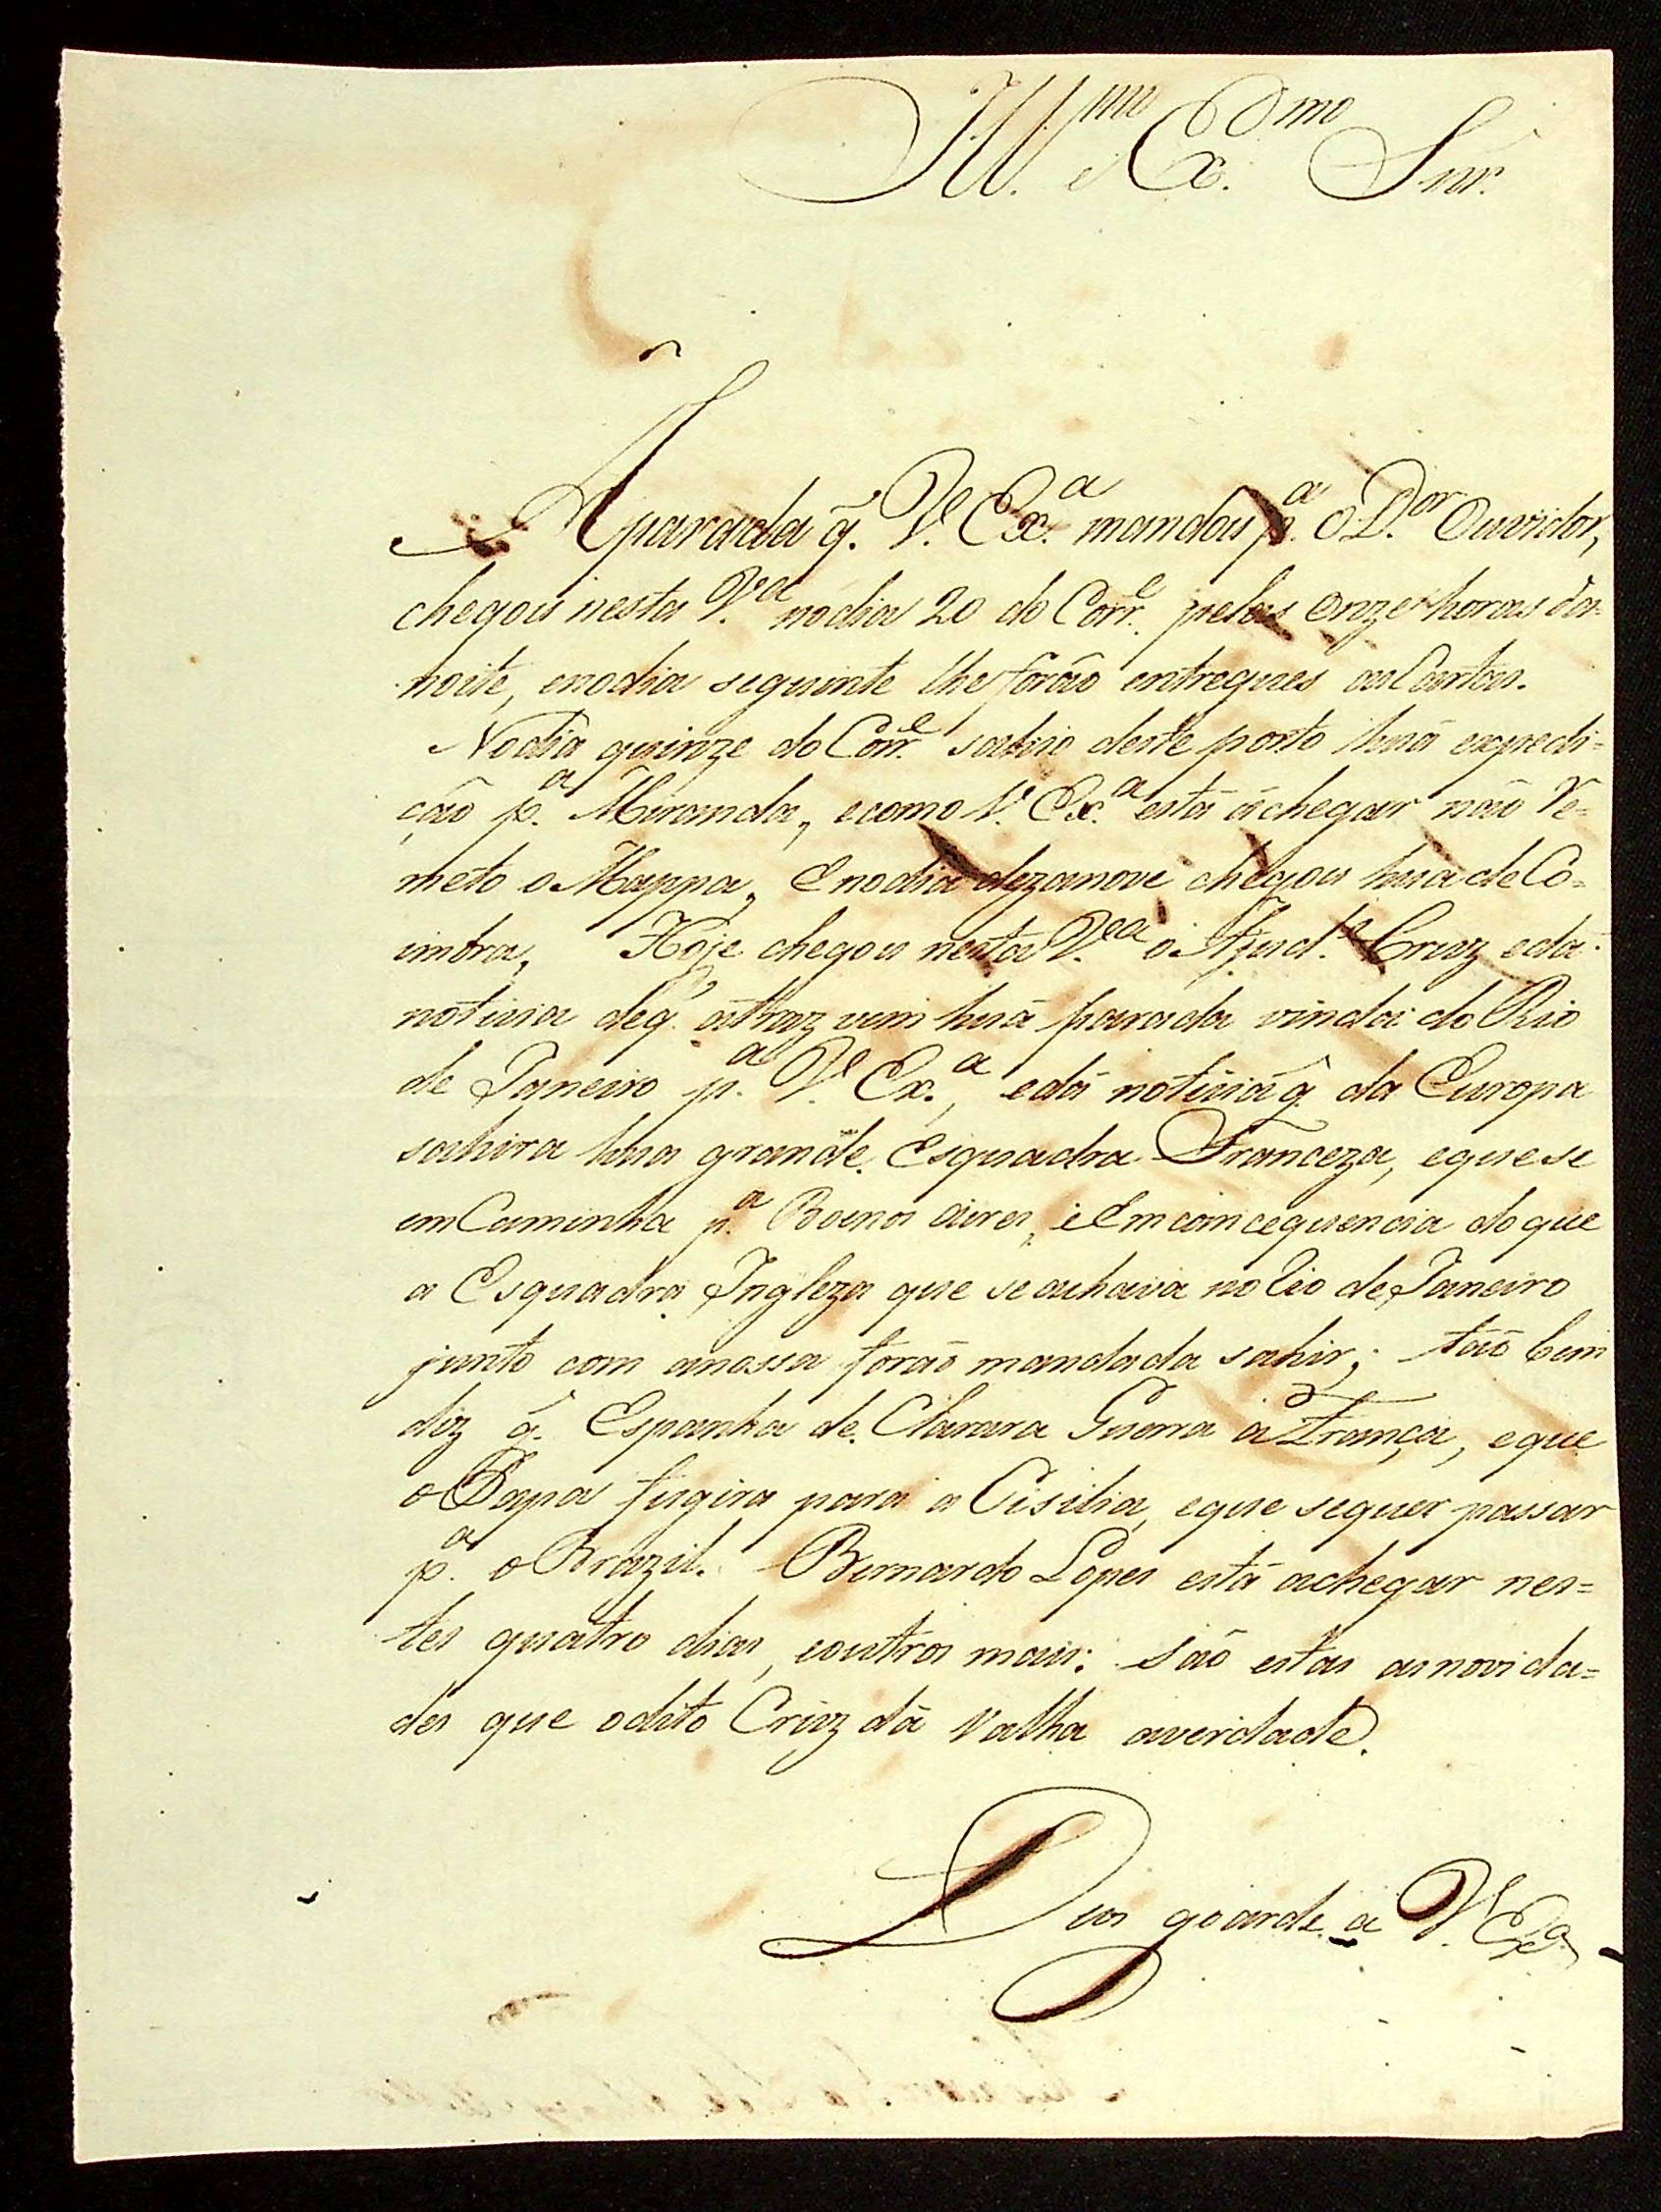 Ill.mo e Ex.mo Snr.
A parada q̃. V. Ex.a mandou p.a o D.or Ouvidor,
chegou nesta V.a no dia 20 do Corr.e pelas onze horas da
noite, eno dia seguinte lhe forão entregues as Cartas.
No dia quinze do Corr.e sahio deste porto huã expedi=
ção p.a Miranda, ecomo V. Ex.a está áchegar não Re=
meto o Mappa, Eno dia dezanove chegou huã de Co=
imbra, Hoje chegou nesta V.a o Ajud.e Cruz edá
noticia de q̃. atraz vem huã parada vinda do Rio
de Janeiro p.a V. Ex.a, edá noticia q̃ da Europa
sahira hua grande Esquadra Franceza, equese
emCaminha p.a Buenos aires, e Emconcequencia doque
a Esquadra Ingleza que se achava no Rio de Janeiro
junto com anossa forão mandada sahir; tão bem
diz q̃. Espanha de Clarara Guerra á França, eque
o Papa fugira para a Cisilia, eque sequer passar
p.a o Brazil. Bernardo Lopes está achegar nes=
tes quatro dias, eoutros mais: são estas asnovida=
des que odito Cruz dá Valha averdade.
Deos goarde a V. Ex.a